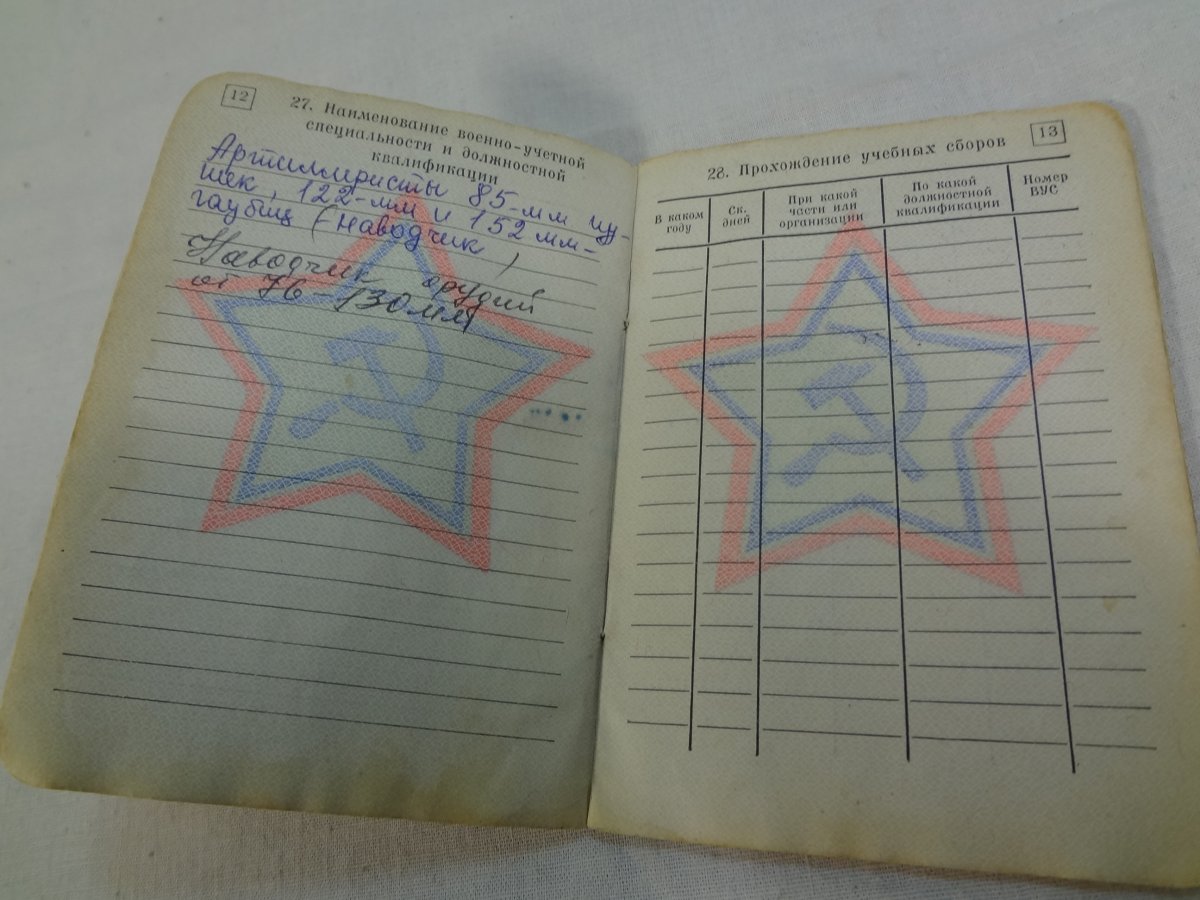 12
27. Наименование военно-учетной
специальности и должностной
квалификации
Артиллеристы 85-мм пу-
шек, 122-мм и 152 мм-
гаубиц (наводчик)
Наводчик орудий
от 76 130мм
13
28. Прохождение учебных сборов
В каком
году
Ск.
дней
При какой
части или
организации
По какой
должностной
квалификации
Номер
ВУС